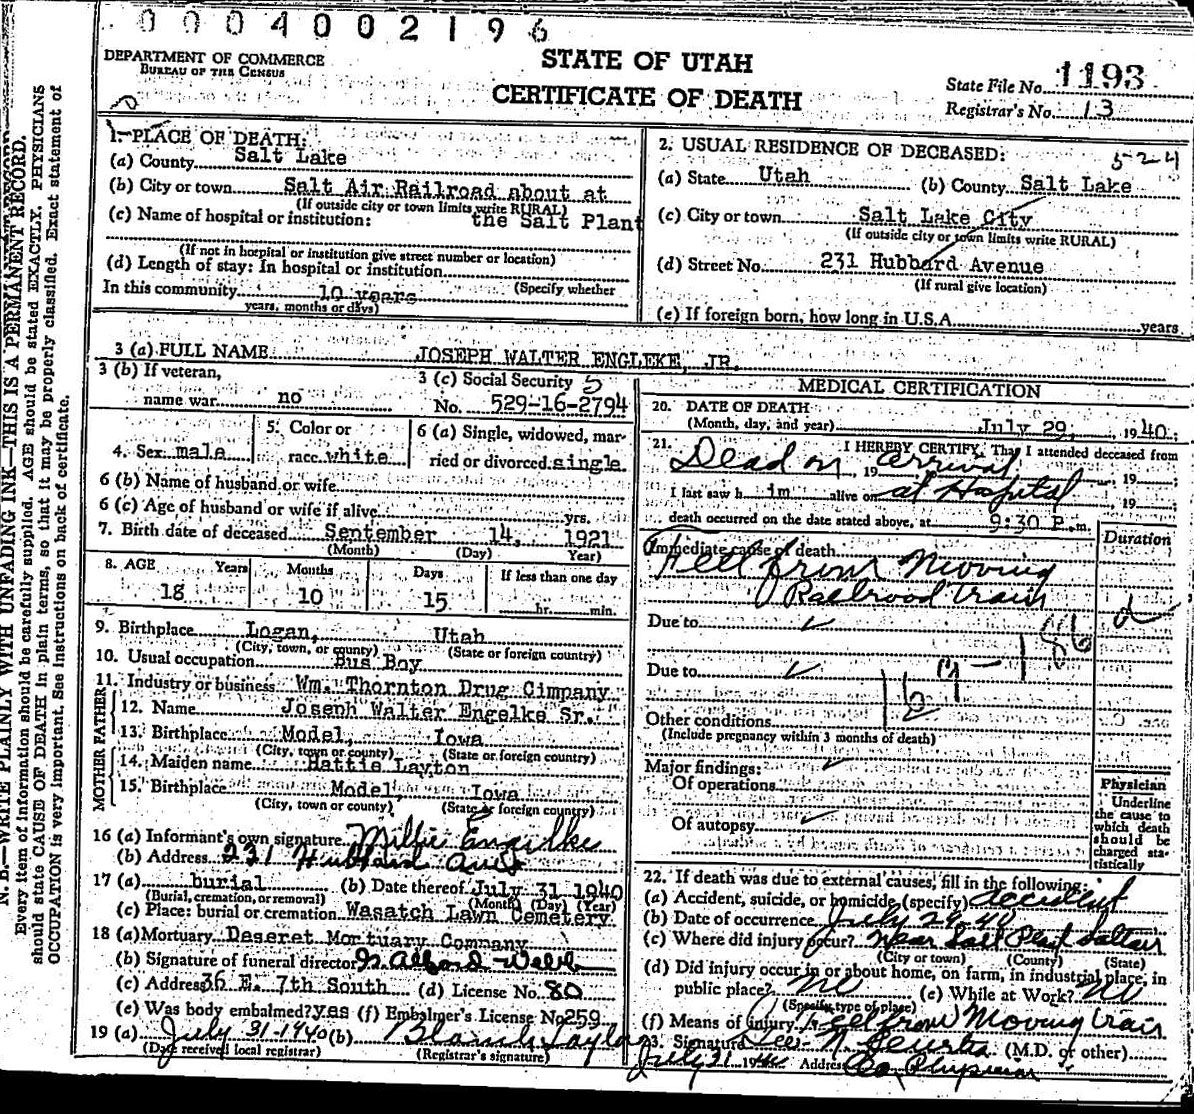 0004002196
DEPARTMENT OF COMMERCE
BUREAU OF THE CENSUS
STATE OF UTAH
CERTIFICATE OF DEATH
State File No. 1193
Registrar's No. 13
N. B.—WRITE PLAINLY WITH UNFADING INK—THIS IS A PERMANENT RECORD.
Every item of information should be carefully supplied. AGE should be stated EXACTLY. PHYSICIANS
should state CAUSE OF DEATH in plain terms, so that it may be properly classified. Exact statement of
OCCUPATION is very important. See instructions on back of certificate.
1. PLACE OF DEATH:
(a) County Salt Lake
(b) City or town Salt Air Railroad about at
(If outside city or town limits write RURAL)
(c) Name of hospital or institution: the Salt Plant
(If not in hospital or institution give street number or location)
(d) Length of stay: In hospital or institution
(Specify whether
In this community 10 years
years, months or days)
2. USUAL RESIDENCE OF DECEASED: 5-24
(a) State Utah (b) County Salt Lake
(c) City or town Salt Lake City
(If outside city or town limits write RURAL)
(d) Street No. 231 Hubbard Avenue
(If rural give location)
(e) If foreign born, how long in U.S.A. years
3 (a) FULL NAME JOSEPH WALTER ENGLEKE, JR.
3 (b) If veteran,
name war no
3 (c) Social Security 5
No. 529-16-2794
4. Sex male
5. Color or
race white
6 (a) Single, widowed, mar-
ried or divorced single
6 (b) Name of husband or wife
6 (c) Age of husband or wife if alive yrs.
7. Birth date of deceased September 14, 1921
(Month) (Day) Year)
8. AGE Years Months Days If less than one day
18 10 15 hr. min.
9. Birthplace Logan, Utah
(City, town, or county) (State or foreign country)
10. Usual occupation Bus Boy
11. Industry or business Wm. Thornton Drug Cimpany
FATHER
12. Name Joseph Walter Engelke Sr.
13. Birthplace Model, Iowa
(City, town or county) (State or foreign country)
MOTHER
14. Maiden name Hattie Layton
15. Birthplace Model, Iowa
(City, town or county) (State or foreign country)
16 (a) Informant's own signature Millie Engelke
(b) Address 231 Hubbard Ave
17 (a) burial (b) Date thereof July 31 1940
(Burial, cremation, or removal) (Month) (Day) (Year)
(c) Place: burial or cremation Wasatch Lawn Cemetery
18 (a) Mortuary Deseret Mortuary Company
(b) Signature of funeral director Webb
(c) Address 36 E. 7th South (d) License No. 80
(e) Was body embalmed? yes (f) Embalmer's License No 259
19 (a) July 31-1940 (b) Blanch Taylor
(Date received local registrar) (Registrar's signature)
MEDICAL CERTIFICATION
20. DATE OF DEATH
(Month, day, and year) July 29, 1940;
21. I HEREBY CERTIFY, That I attended deceased from
Dead on arrival, 19 , 19 ;
I last saw h im alive on at Hospital, 19 ;
death occurred on the date stated above, at 9:30 P.m.
Duration
Immediate cause of death
Fell from Moving
Railroad train
Due to
Due to
Other conditions
(Include pregnancy within 3 months of death)
Major findings:
Of operations
Of autopsy
Physician
Underline
the cause to
which death
should be
charged sta-
tistically
22. If death was due to external causes, fill in the following:
(a) Accident, suicide, or homicide (specify) Accident
(b) Date of occurrence July 29-40
(c) Where did injury occur? Near Salt Plant Saltair
(City or town) (County) (State)
(d) Did injury occur in or about home, on farm, in industrial place, in
public place? no (e) While at Work? no
(Specify type of place)
(f) Means of injury Fell from Moving train
23. Signature (M.D. or other)
July 31 1940 Address Co. Physician